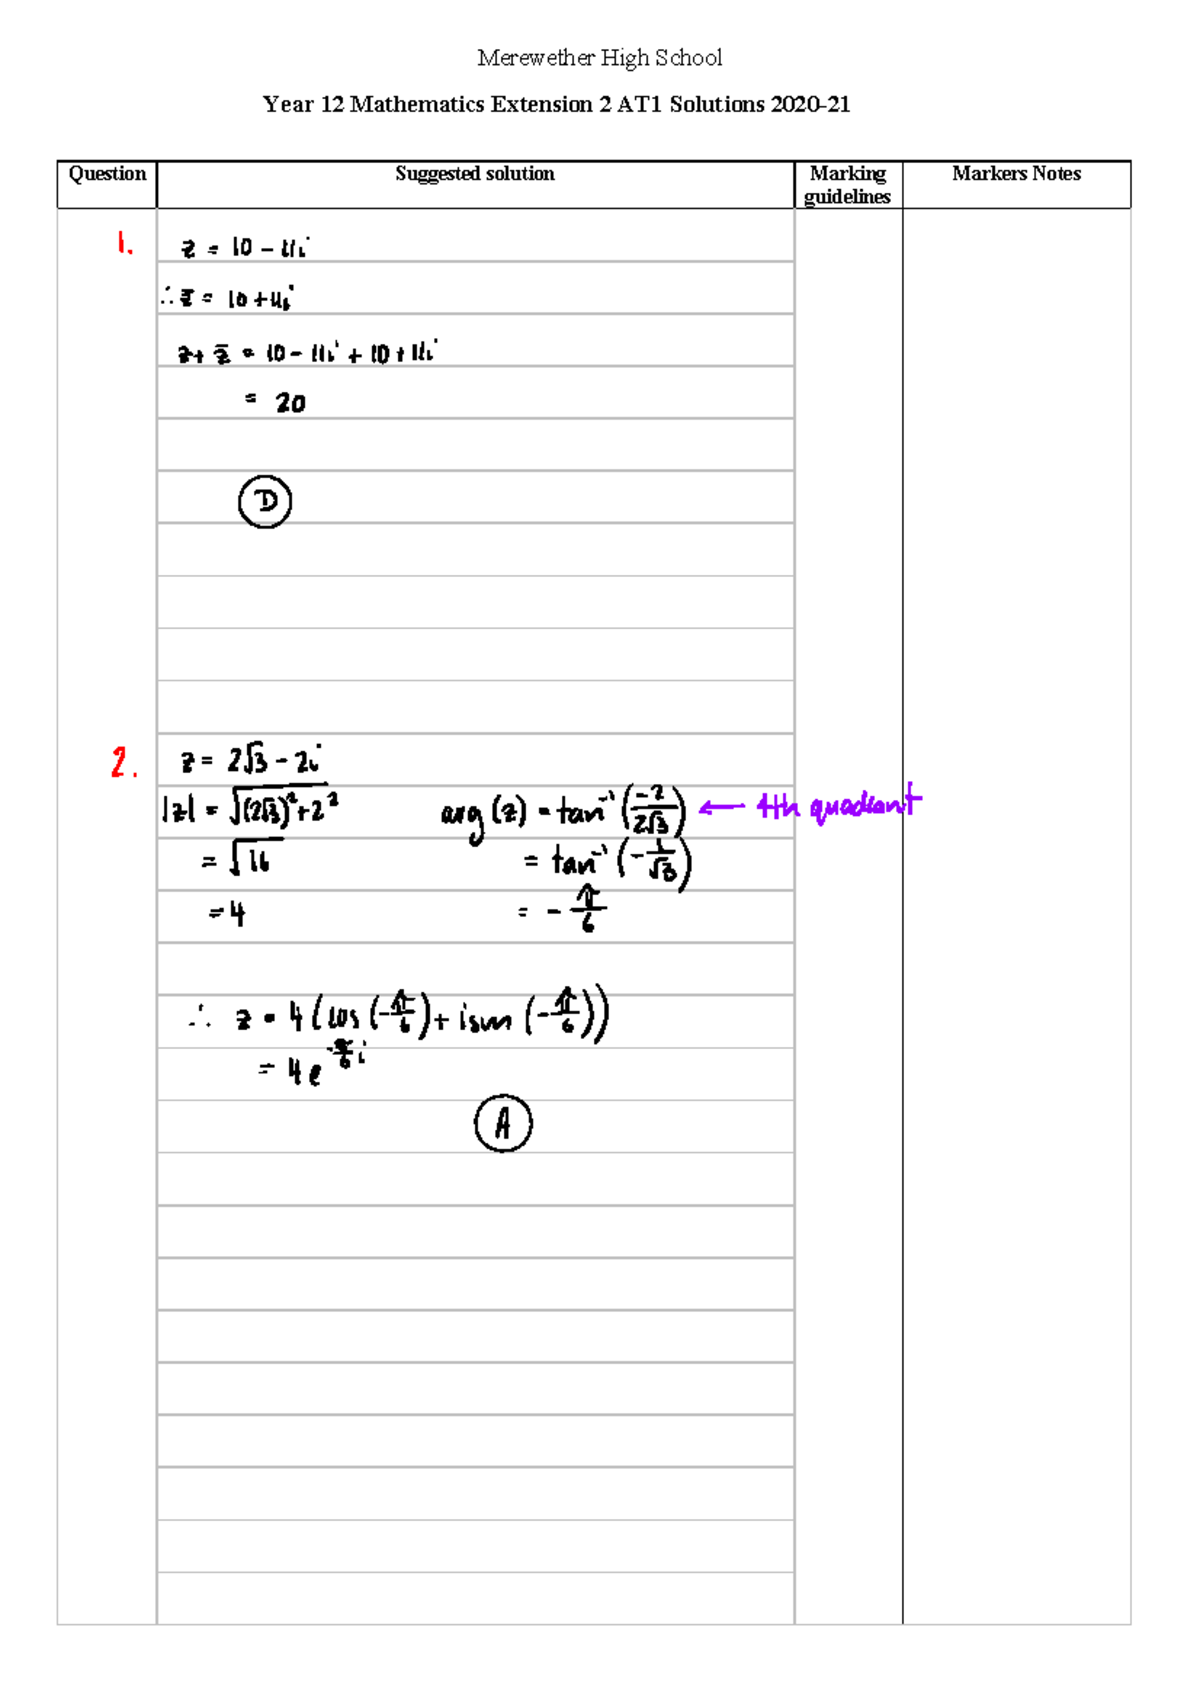 Merewether High School
Year 12 Mathematics Extension 2 AT1 Solutions 2020-21
Question Suggested solution Marking guidelines Markers Notes
1. z = 10 - 11i
∴ z̄ = 10 + 11i
z + z̄ = 10 - 11i + 10 + 11i
= 20
D
2. z = 2√3 - 2i
|z| = √((2√3)² + 2²) arg (z) = tan⁻¹ (-2/2√3) ← 4th quadrant
= √16 = tan⁻¹ (-1/√3)
= 4 = -π/6
∴ z = 4 (cos (-π/6) + i sin (-π/6))
= 4e^(-π/6 i)
A